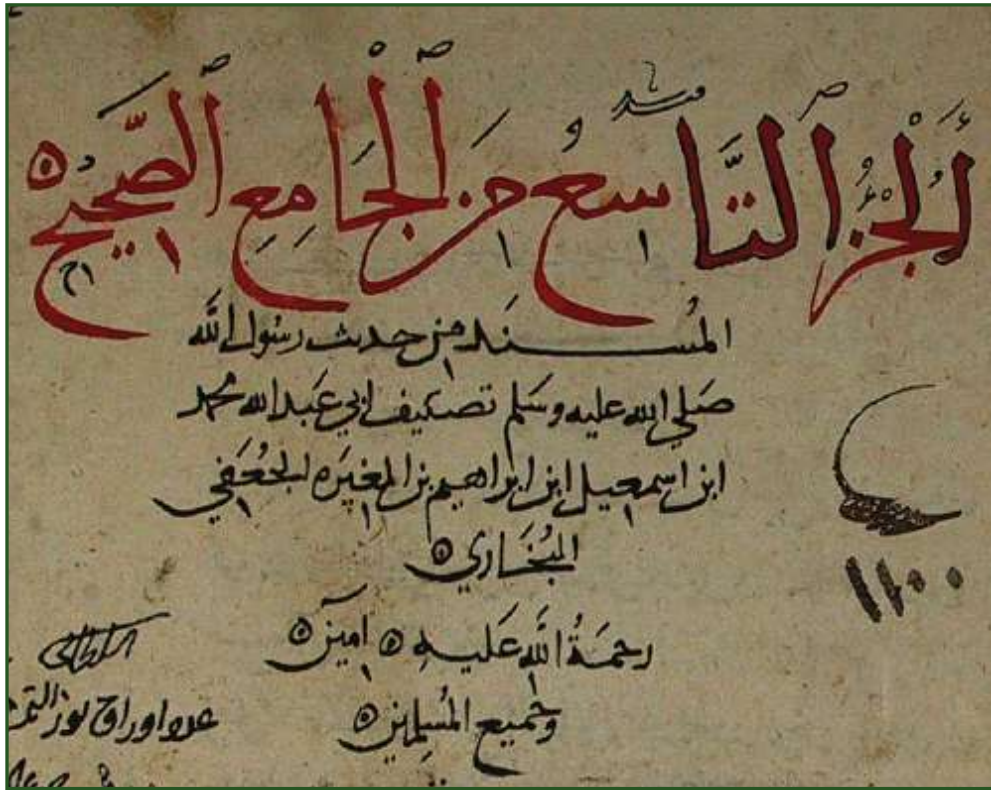 الجُزْءُ التَّاسِعُ مِنَ الْجَامِعِ الصَّحِيحِ
المُسند من حديث رسول الله
صَلى الله عليه وسَلم تصنيف ابي عَبد الله محمد
ابن اسمعيل ابن ابراهيم بن المغيره الجُعفي
البُخَاري
رحمَةُ الله عَليهِ امين
وجَميع المُسلمين
١١٠٠
عدد اوراق